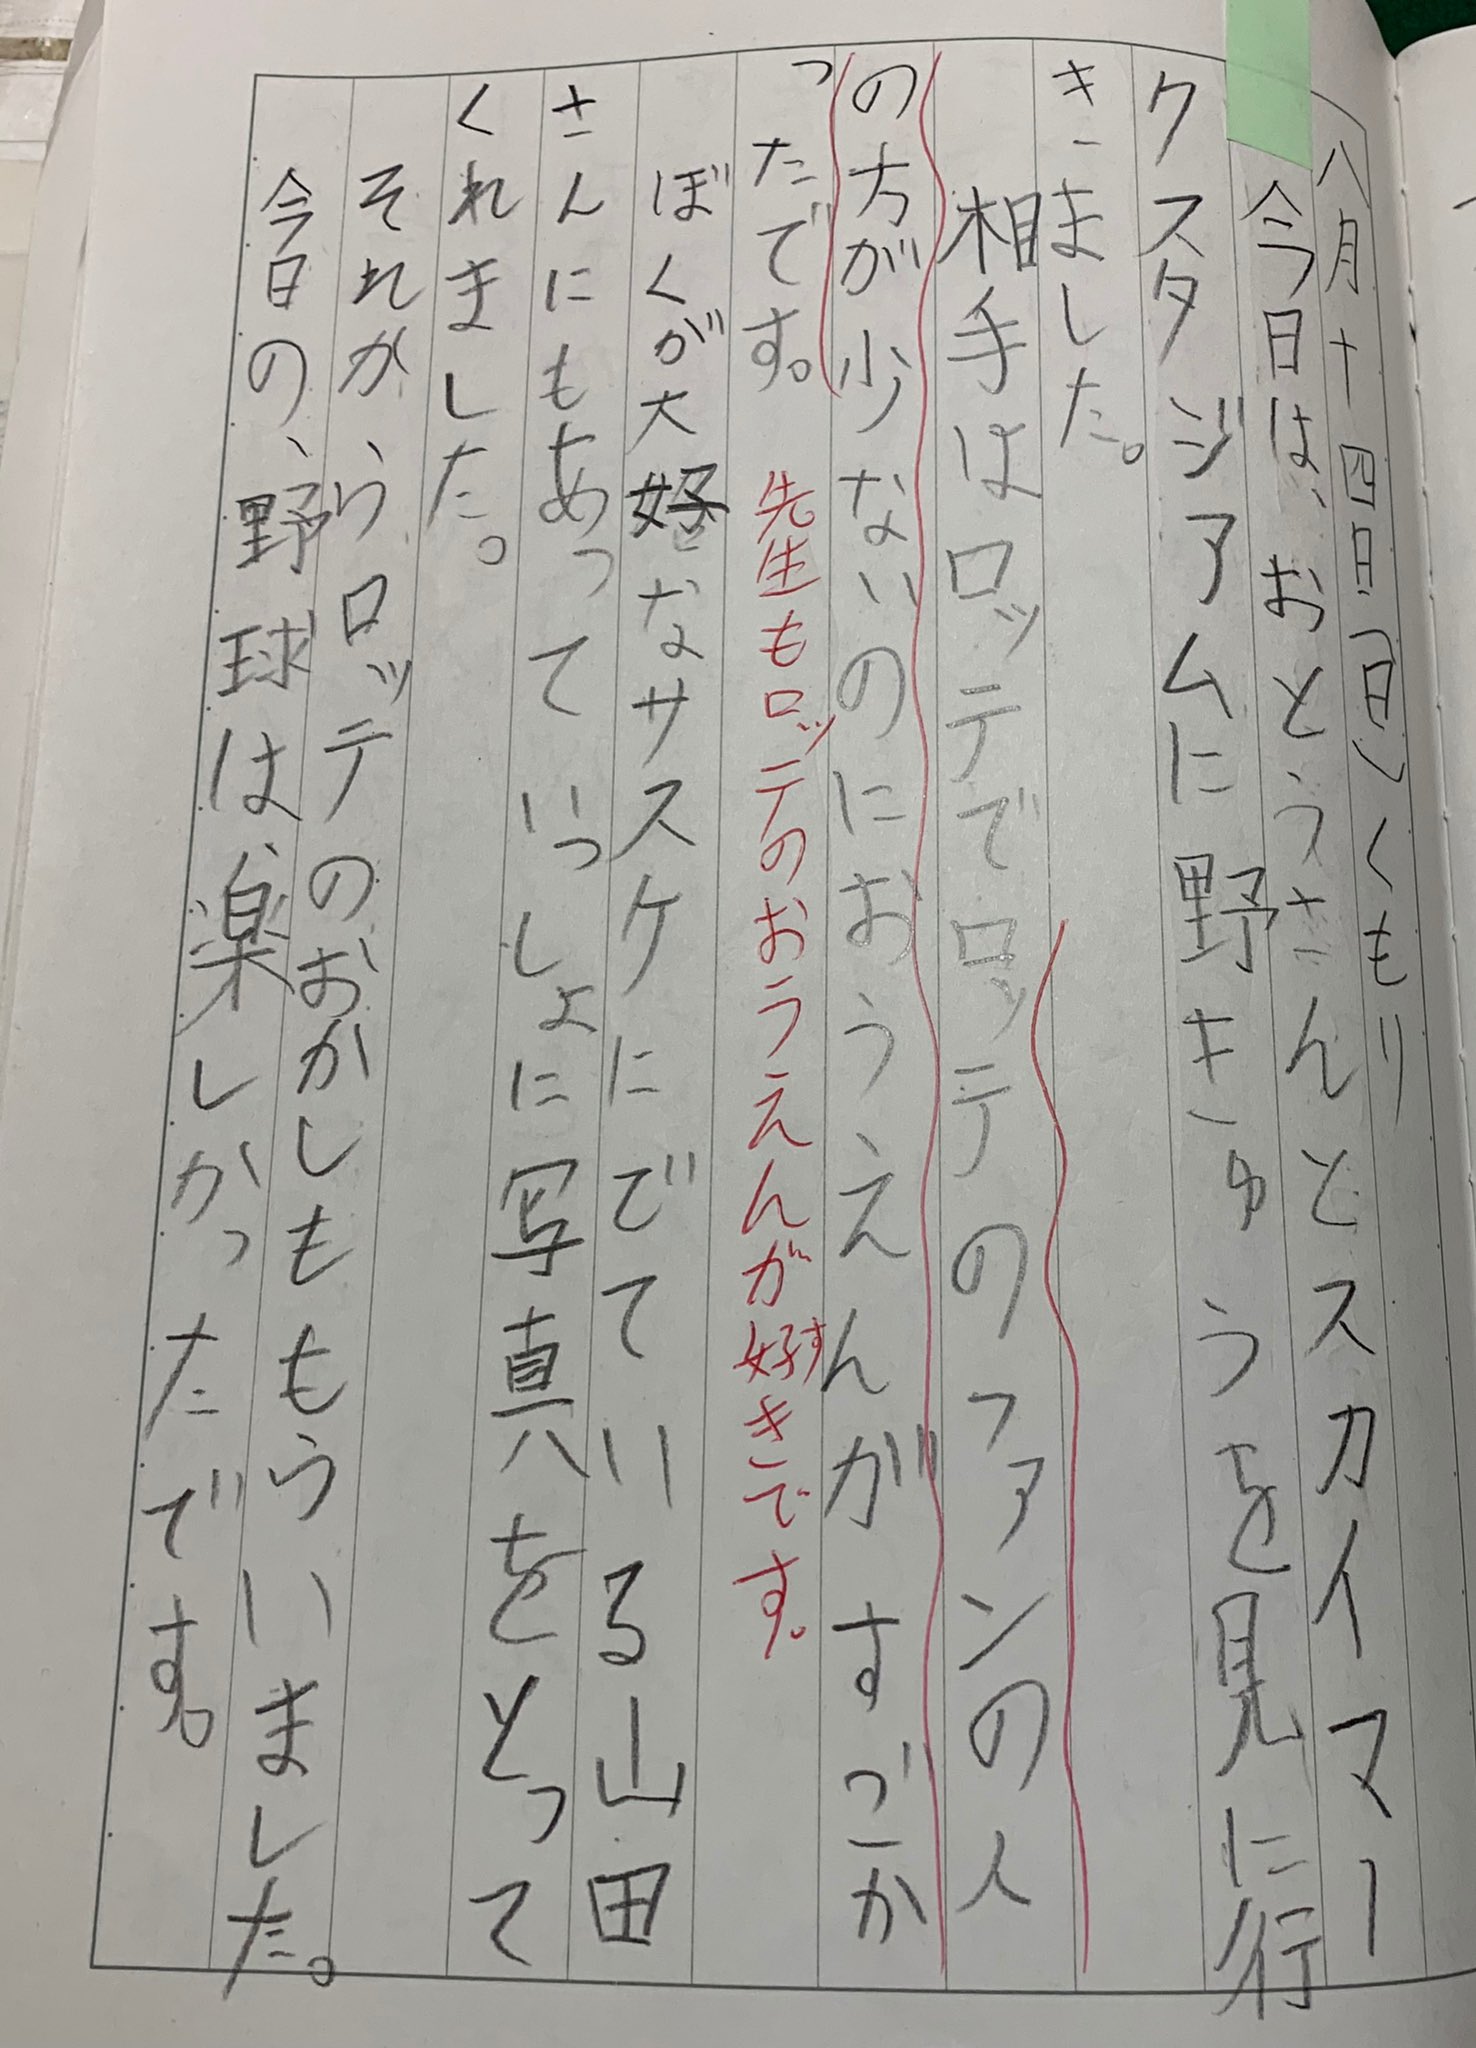 八月十四日(日)くもり
今日は、おとうさんとスカイマー
クスタジアムに野きゅうを見に行
きました。
相手はロッテでロッテのファンの人
の方が少ないのにおうえんがすごか
ったです。
先生もロッテのおうえんが好きです。
す
ぼくが大好きなサスケにでている山田
さんにもあっていっしょに写真をとって
くれました。
それからロッテのおかしももらいました。
今日の、野球は、楽しかったです。